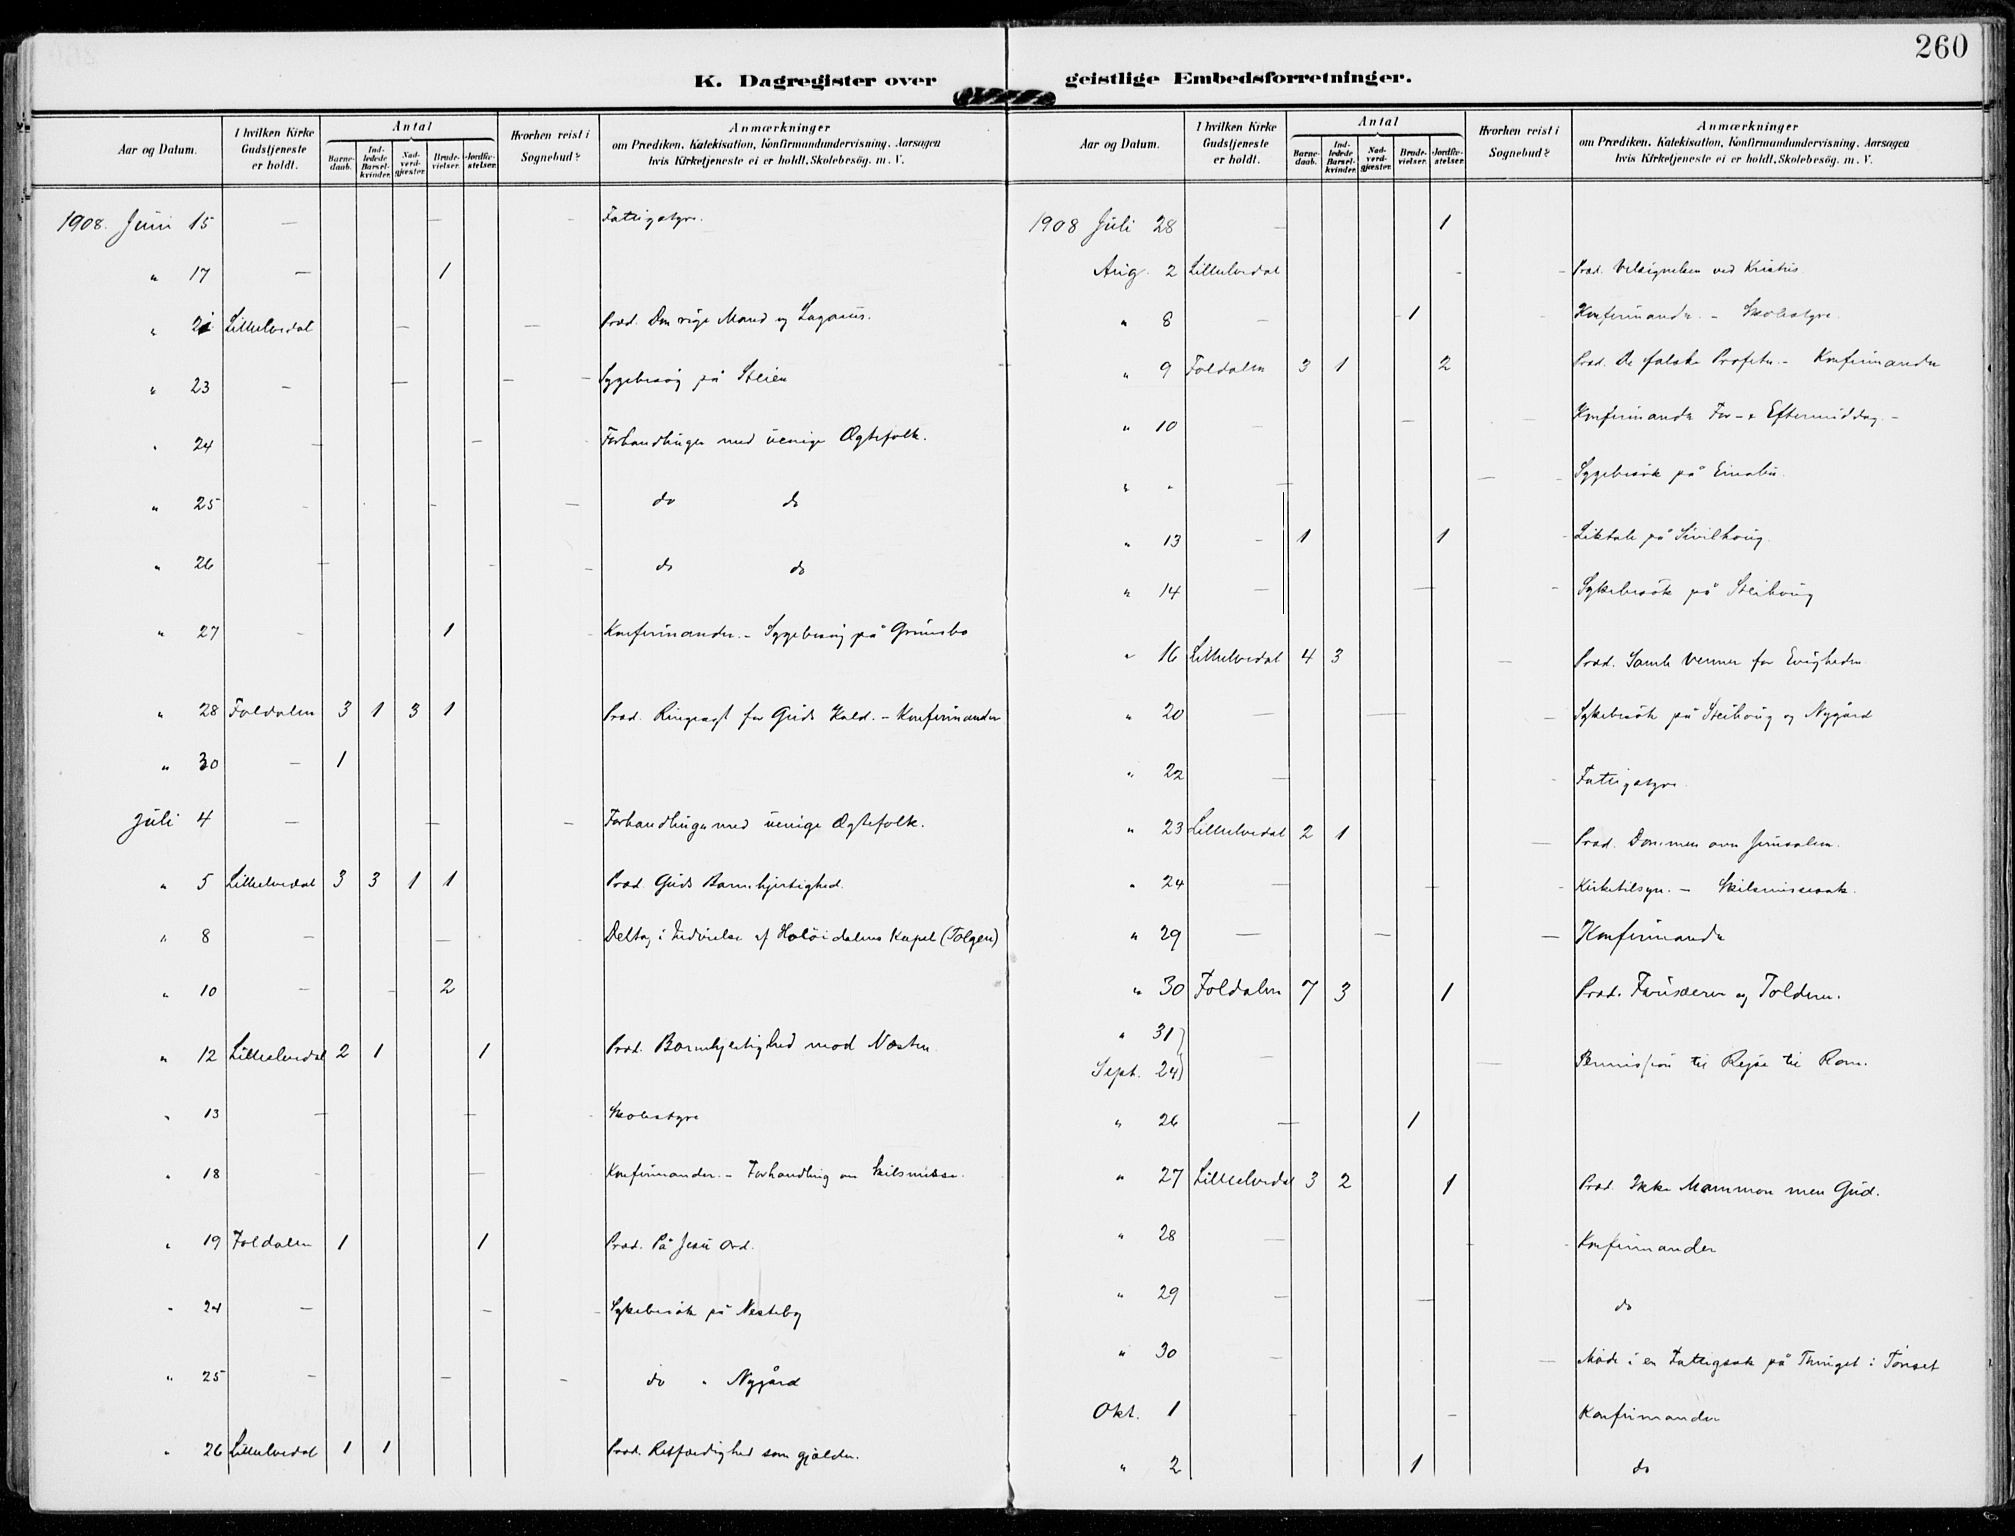 260
K. Dagregister over geistlige Embedsforretninger.
Aar og Datum. I hvilken Kirke Gudstjeneste er holdt. Antal Barnedaab. Indledede Barselkvinder. Nadverdgjæster. Brudevielser. Jordfæstelser. Hvorhen reist i Sognebud? Anmærkninger om Prædiken, Katekisation, Konfirmandundervisning, Aarsagen hvis Kirketjeneste ei er holdt, Skolebesög. m. V.
1908. Juni 15 — — - Fattigstyre.
" 17 — 1
" 21 Lilleelvedal — — Præd. Den rige Mand og Lazarus.
" 23 - — — - Sygebesøg på Steien
" 24 — — - Forhandlinger med uenige Ægtefolk.
" 25 - - — do do
" 26 — - - do do
" 27 - 1 - Konfirmander. - Sygebesøg på Grimsbo
" 28 Foldalen 3 1 3 1 Præd. Ringeagt for Guds Kald. - Konfirmander
" 30 - 1
Juli 4 — — — Forhandlinger med uenige Ægtefolk.
" 5 Lilleelvedal 3 3 1 1 Præd. Guds Barmhjertighed.
" 8 - — - Deltog i Indvielse af Holøidalens Kapel (Tolgen)
" 10 - - 2
" 12 Lilleelvedal 2 1 1 Præd. Barmhjertighed mod Næsten
" 13 — — - Skolestyre
" 18 - — Konfirmander. - Forhandling om Skilsmisse.
" 19 Foldalen 1 1 Præd. På Jesu Ord.
" 24 - - - Sykebesøk på Nesteby
" 25 - - - do " Nygård
" 26 Lilleelvedal 1 1 Præd. Retfærdighed som gjælder.
Aar og Datum. I hvilken Kirke Gudstjeneste er holdt. Antal Barnedaab. Indledede Barselkvinder. Nadverdgjæster. Brudevielser. Jordfæstelser. Hvorhen reist i Sognebud? Anmærkninger om Prædiken, Katekisation, Konfirmandundervisning, Aarsagen hvis Kirketjeneste ei er holdt, Skolebesög. m. V.
1908 Juli 28 - 1
Aug. 2 Lilleelvedal - - Præd. Velsignelsen ved Kristus.
" 8 - 1 - Konfirmander. - Skolestyre.
" 9 Foldalen 3 1 2 Præd. De falske Profeter. - Konfirmander
" 10 - — - Konfirmander For- & Eftermiddag. -
" " — — - Sygebesøk på Einabu.
" 13 - 1 1 - Liktale på Sivilhoug.
" 14 — — - Sykebesøk på Steihoug
" 16 Lilleelvedal 4 3 — Præd. Samle Venner for Evigheden
" 20 — — - Sykebesøk på Steihoug og Nygård
" 22 — - - Fattigstyre.
" 23 Lilleelvedal 2 1 — Præd. Dommen over Jerusalem.
" 24 — — - Kirketilsyn. - Skilsmissesak.
" 29 — — — Konfirmander
" 30 Foldalen 7 3 1 Præd. Farisæeren og Tolderen.
" 31 }
Sept. 24 } - — Permission til Rejse til Rom.
" 26 — 1
" 27 Lilleelvedal 3 2 1 Præd. Ikke Mammon men Gud.
" 28 — - - Konfirmander
" 29 — — do
" 30 — — Møde i en Fattigsak på Thinget i Tønset
Okt. 1 - - Konfirmander
" 2 1 do